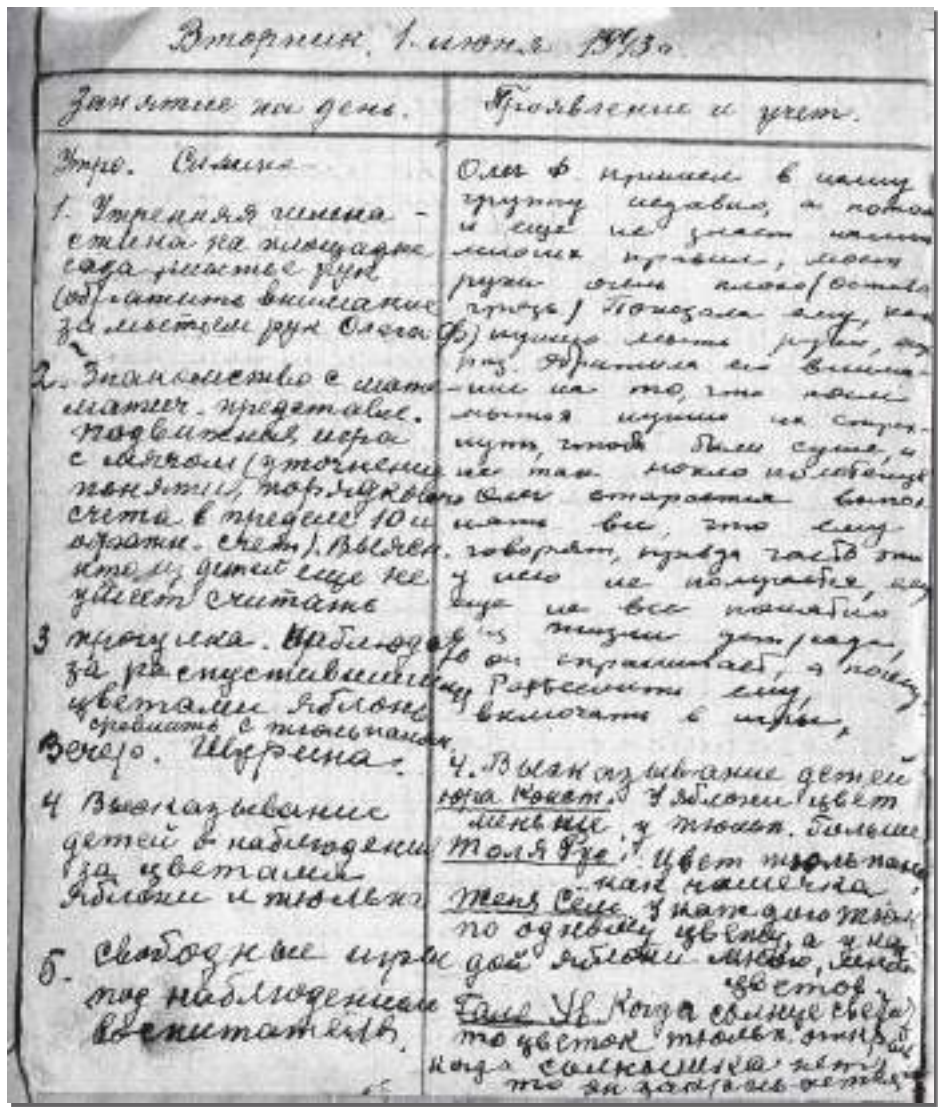 Вторник, 1 июня 1943 г.
Занятие на день.
Утро. Симина
1. Утренняя гимна-
стика на площадке
сада, мытье рук
(обратить внимание
за мытьем рук Олега Ф)
2. Знакомство с мате-
матич. представл.
подвижная игра
с мячом (уточнение
понятия, порядкового
счета в пределе 10 и
обратн. счет). Выясн.
кто из детей еще не
умеет считать
3 прогулка. Наблюдать
за распустившимися
цветами яблонь
сравнить с тюльпаном.
Вечер. Шурина.
4 Высказывание
детей о наблюдении
за цветами
яблони и тюльп
5. свободные игры
под наблюдением
воспитателя.
Проявление и учет.
Олег Ф. пришел в нашу
группу недавно, а потом
и еще не знает наших
многих правил, моет
руки очень плохо (остав
грязь) Показала ему, как
нужно мыть руки,
раз. Обратила его внима-
ние на то, что после
мытья нужно их стрях-
нуть, чтоб были суше, и
не так мокло полотенце
Олег старается выпол
нять все, что ему
говорят, правда часть
у него не получается, ему
еще не все понятно
из жизни дет/сада,
он спрашивает, а
Разъяснить ему,
включать в игры,
4. Высказывание детей
Юра Конст. У яблони цвет
меньше, у тюльп. больше
Толя Рус. Цвет тюльпана,
как чашечка
Женя Сем. У каждого тюл
по одному цветку, а у каж
дой яблони много, много
цветов.
Галя Ув. Когда солнце светит
то цветок тюльп. откр
когда солнышка нет,
то он закрывается